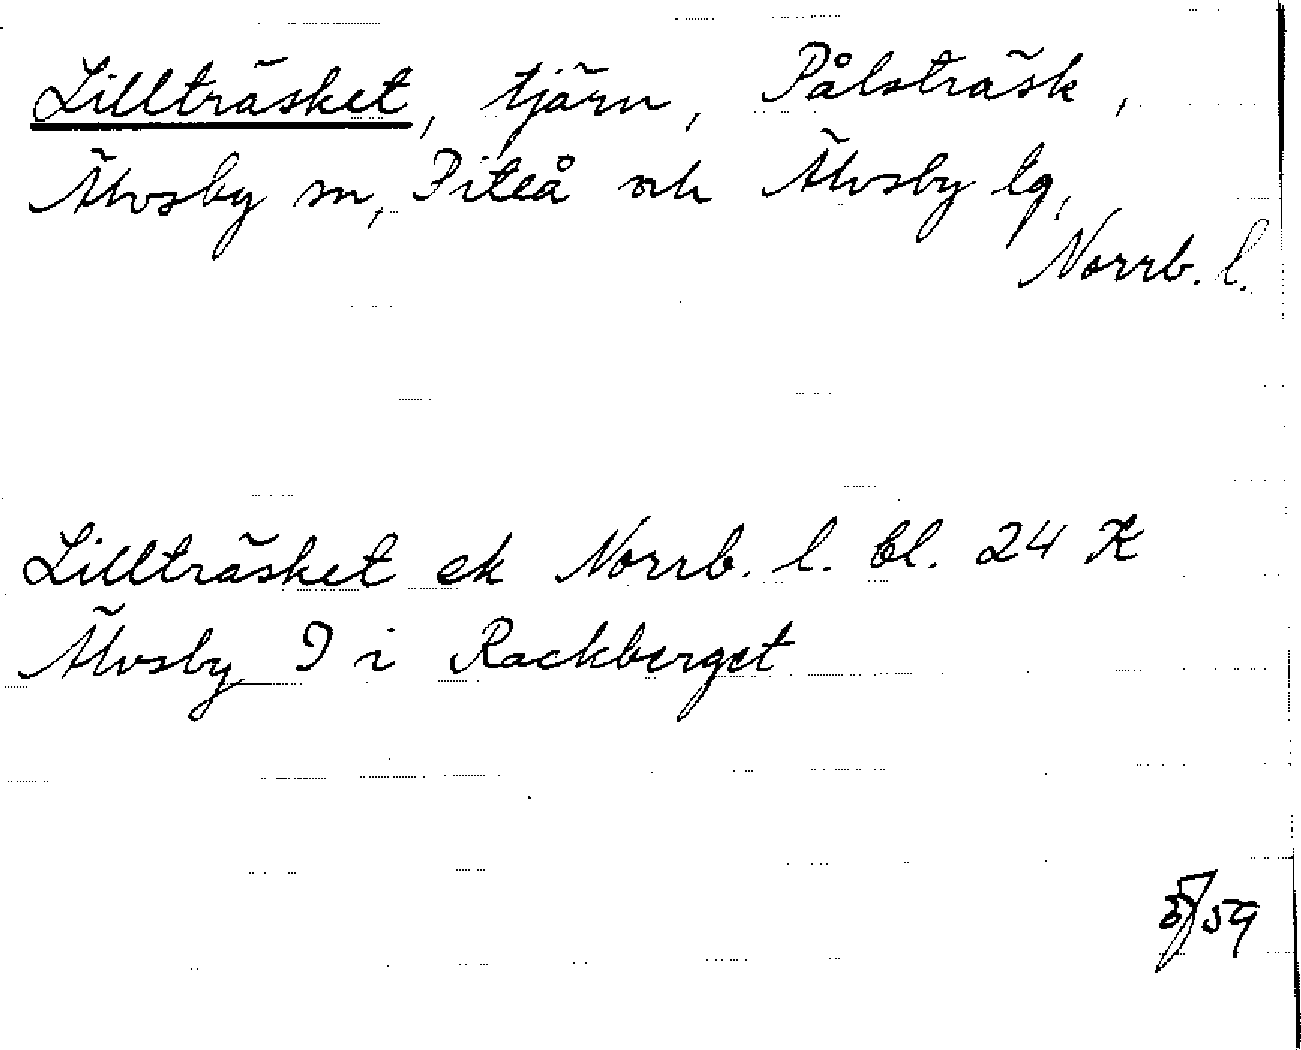 Lillträsket, tjärn, Pålsträsk,
Älvsby sn, Piteå och Älvsby tg,
Norrb. l.
Lillträsket ek Norrb. l. bl. 24 K
Älvsby I i Rackberget
/59